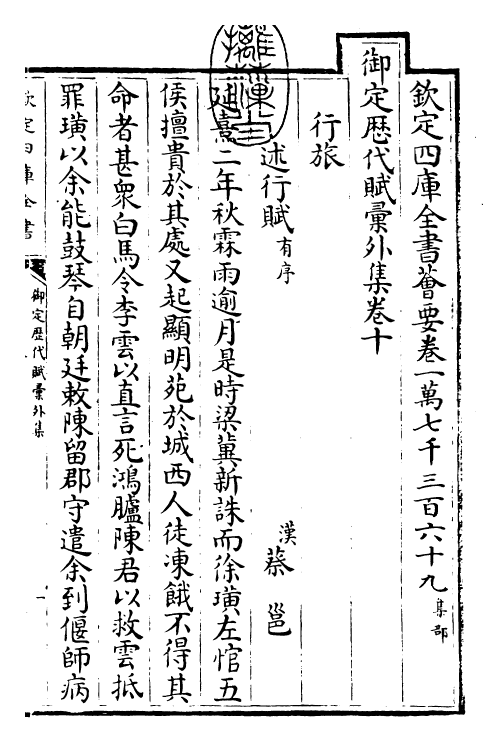 欽定四庫全書薈要卷一萬七千三百六十九 集部
御定歷代賦彙外集卷十
行旅
述行賦 有序 漢 蔡邕
延熹二年秋霖雨逾月是時梁冀新誅而徐璜左悺五
侯擅貴於其處又起顯明苑於城西人徒凍餓不得其
命者甚衆白馬令李雲以直言死鴻臚陳君以救雲抵
罪璜以余能鼓琴自朝廷敕陳留郡守遣余到偃師病
欽定四庫全書
御定歷代賦彙外集
一